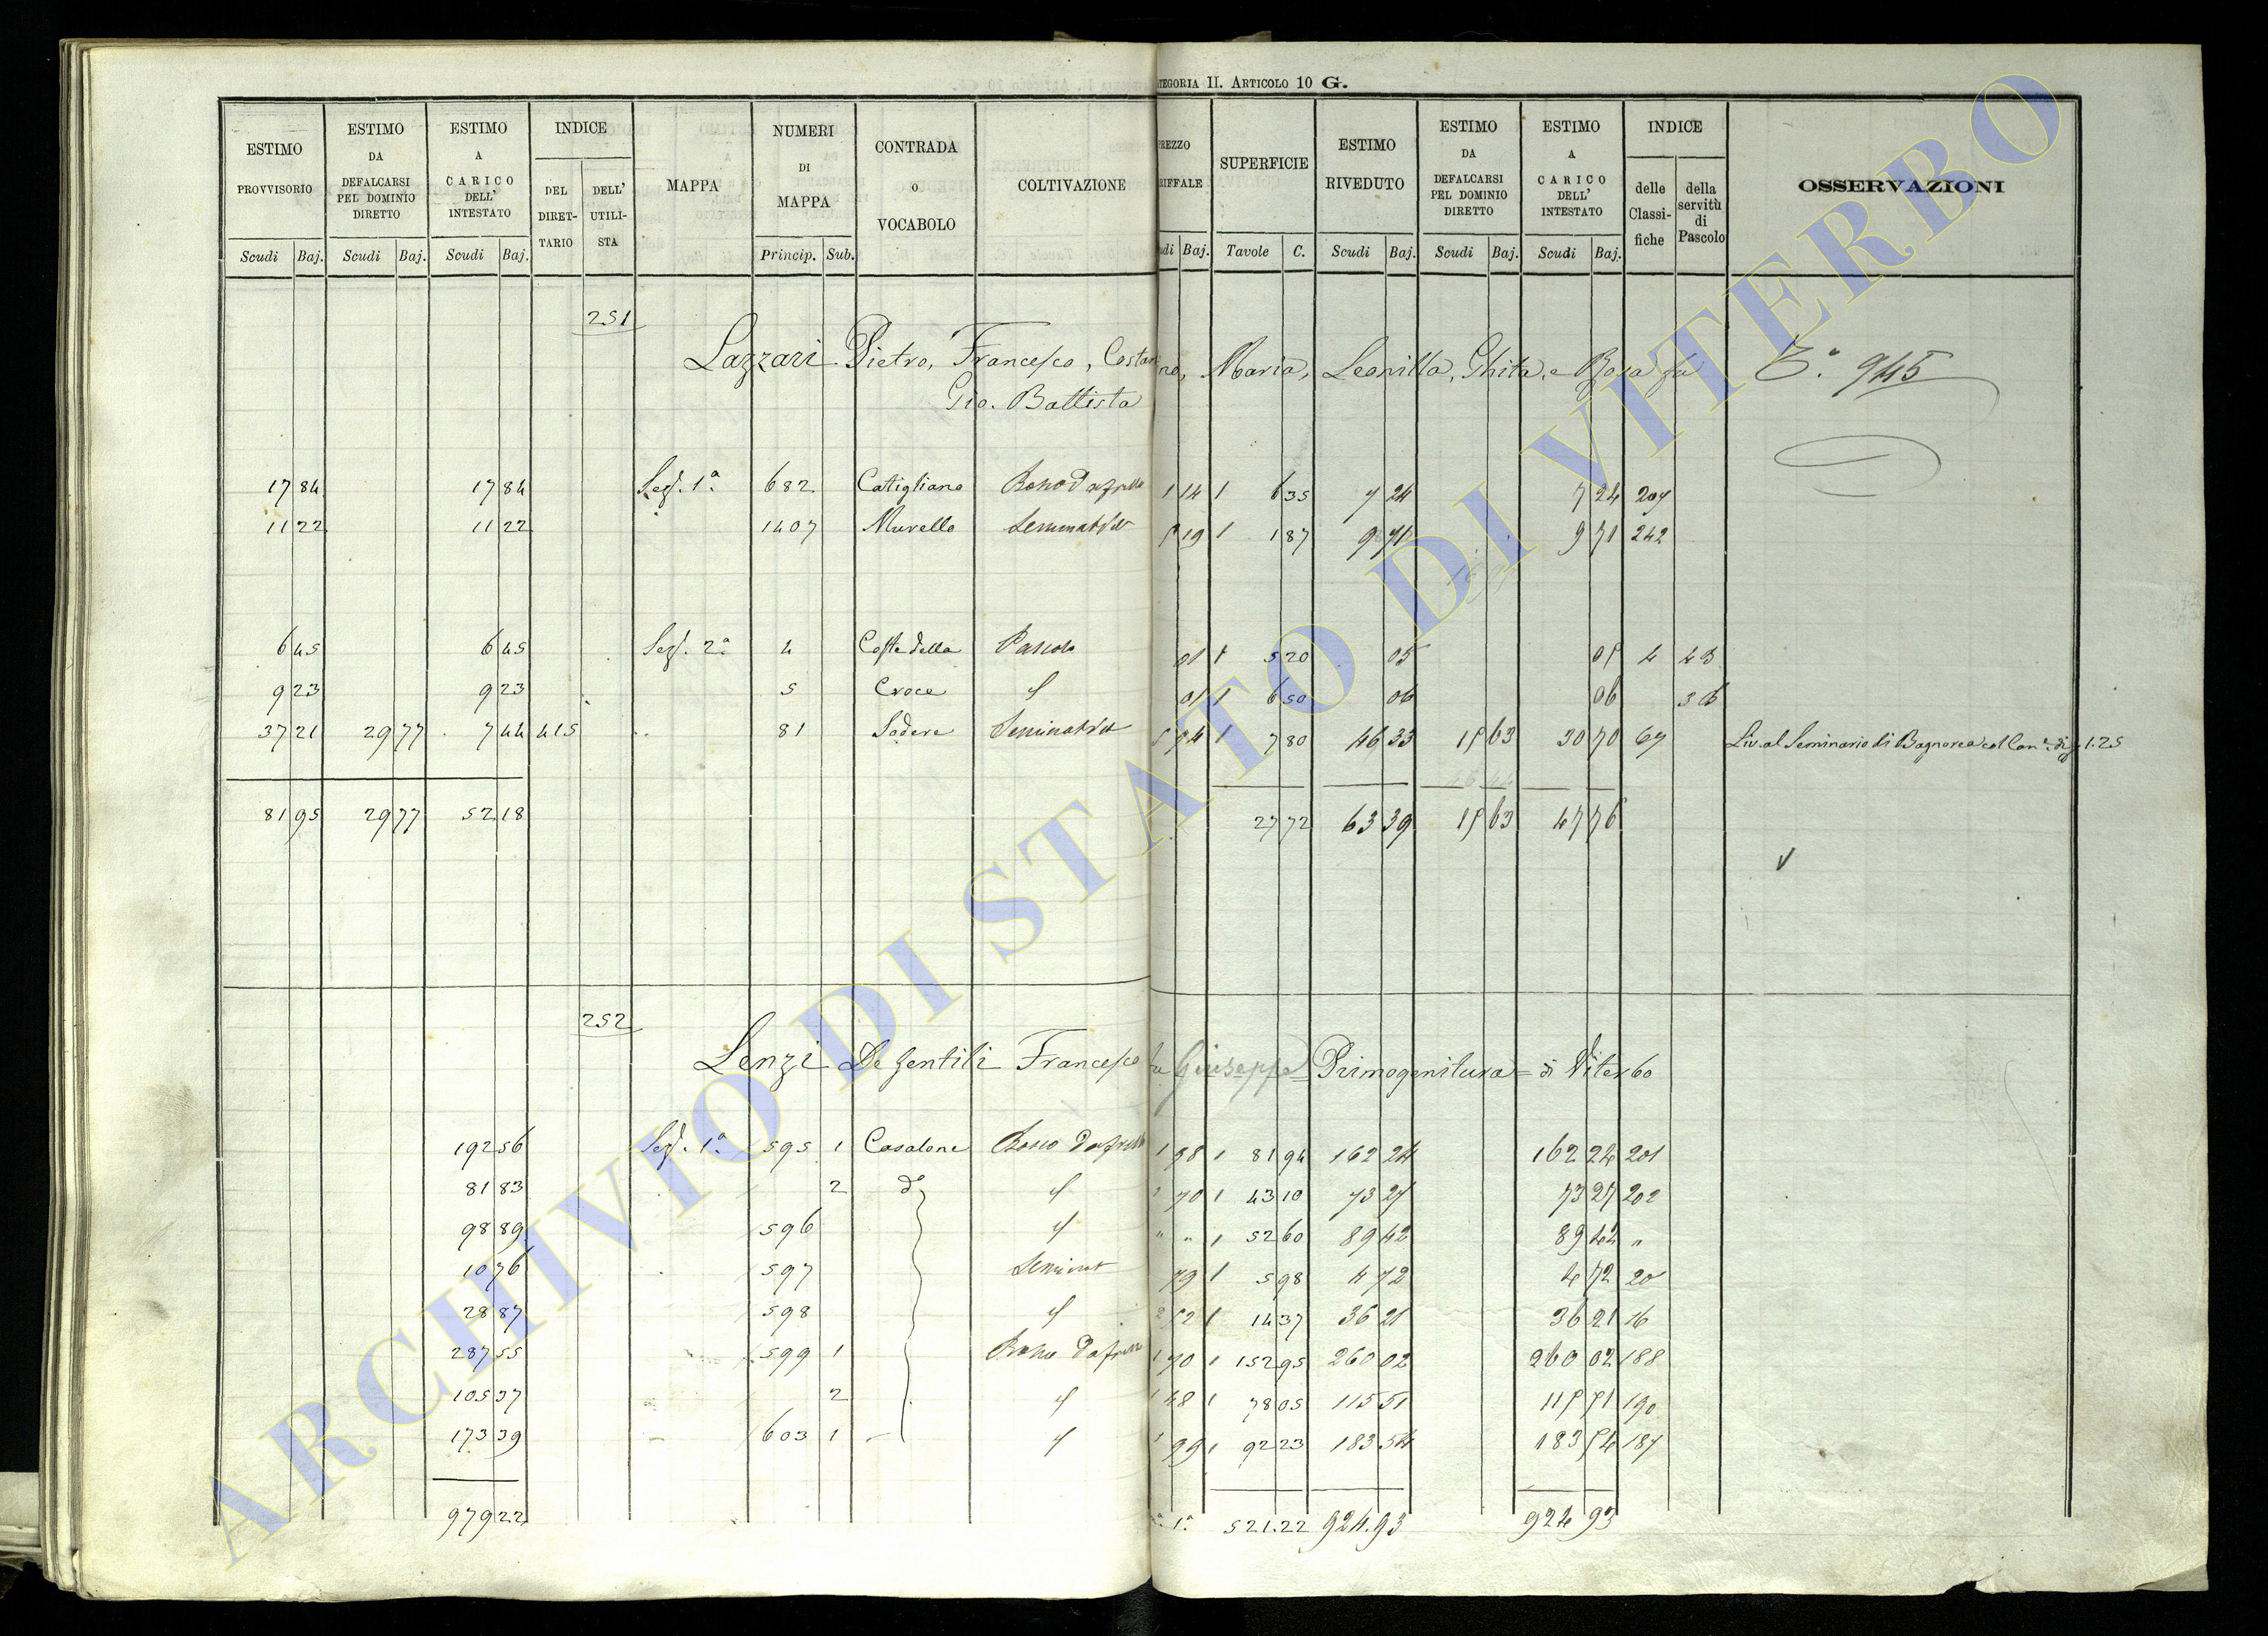 ATEGORIA II. ARTICOLO 10 G.
ESTIMO PROVVISORIO Scudi Baj.
ESTIMO DA DEFALCARSI PEL DOMINIO DIRETTO Scudi Baj.
ESTIMO A CARICO DELL' INTESTATO Scudi Baj.
INDICE DEL DIRET-TARIO DELL' UTILI-STA
MAPPA
NUMERI DI MAPPA Princip. Sub.
CONTRADA O VOCABOLO
COLTIVAZIONE
PREZZO RIFFALE udi Baj.
SUPERFICIE Tavole C.
ESTIMO RIVEDUTO Scudi Baj.
ESTIMO DA DEFALCARSI PEL DOMINIO DIRETTO Scudi Baj.
ESTIMO A CARICO DELL' INTESTATO Scudi Baj.
INDICE delle Classi-fiche della servitù di Pascolo
OSSERVAZIONI
251
Lazzari Pietro, Francesco, Costan no, Maria, Leonilla, Ghita, e Rosa fu
Gio. Battista
945
17 84 17 84 Sez. 1ª 682 Catigliano 1 14 1 6 35 7 24 7 24 207
11 22 11 22 1407 Murello 5 19 1 1 87 9 71 9 71 242
6 45 6 45 Sez. 2ª 4 Coste della Pascolo 01 1 5 20 05 05 4 43
9 23 9 23 5 Croce 01 1 6 50 06 06 36
37 21 29 77 7 44 415 81 Sodere 5 94 1 7 80 46 33 15 63 30 70 67 Liv. al Seminario di Bagnorea col Can.e di 1.25
81 95 29 77 52 18 27 72 63 39 15 63 47 76
252
Lenzi De Gentili Francesco fu Giuseppe = Primogenitura = di Viterbo
192 56 Sez. 1ª 595 1 Casalone 1 98 1 81 94 162 24 162 24 201
81 83 2 dº 1 70 1 43 10 73 27 73 27 202
98 89 596 " " 1 52 60 89 42 89 42 "
10 76 597 Seminat 79 1 5 98 4 72 4 72 20
28 87 598 2 52 1 14 37 36 21 36 21 16
287 55 599 1 1 70 1 152 95 260 02 260 02 188
105 37 2 1 48 1 78 05 115 51 115 51 190
173 39 603 1 1 99 1 92 23 183 54 183 54 187
979 22 1ª 521.22 924.93 924 93
ARCHIVIO DI STATO DI VITERBO